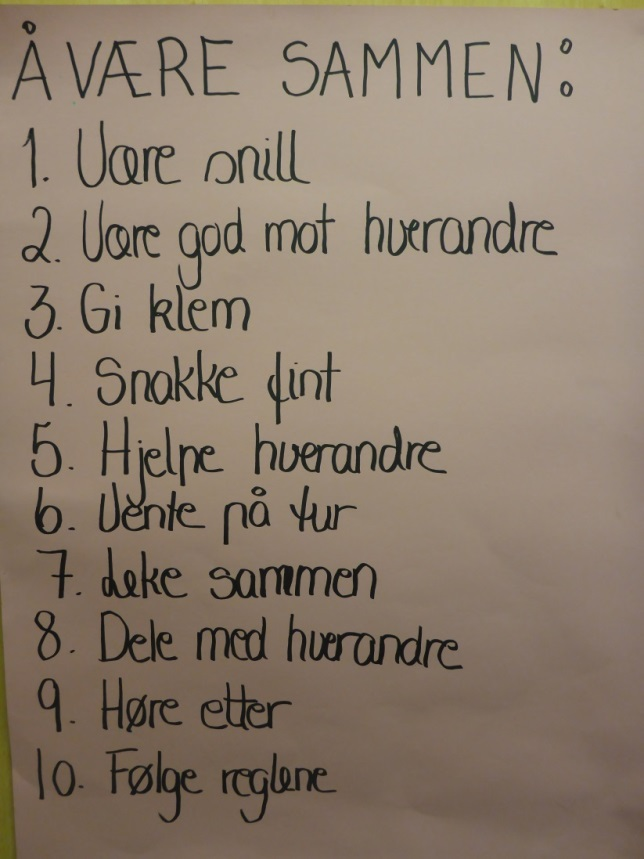 Å VÆRE SAMMEN:
1. Være snill
2. Være god mot hverandre
3. Gi klem
4. Snakke fint
5. Hjelpe hverandre
6. Vente på tur
7. Leke sammen
8. Dele med hverandre
9. Høre etter
10. Følge reglene